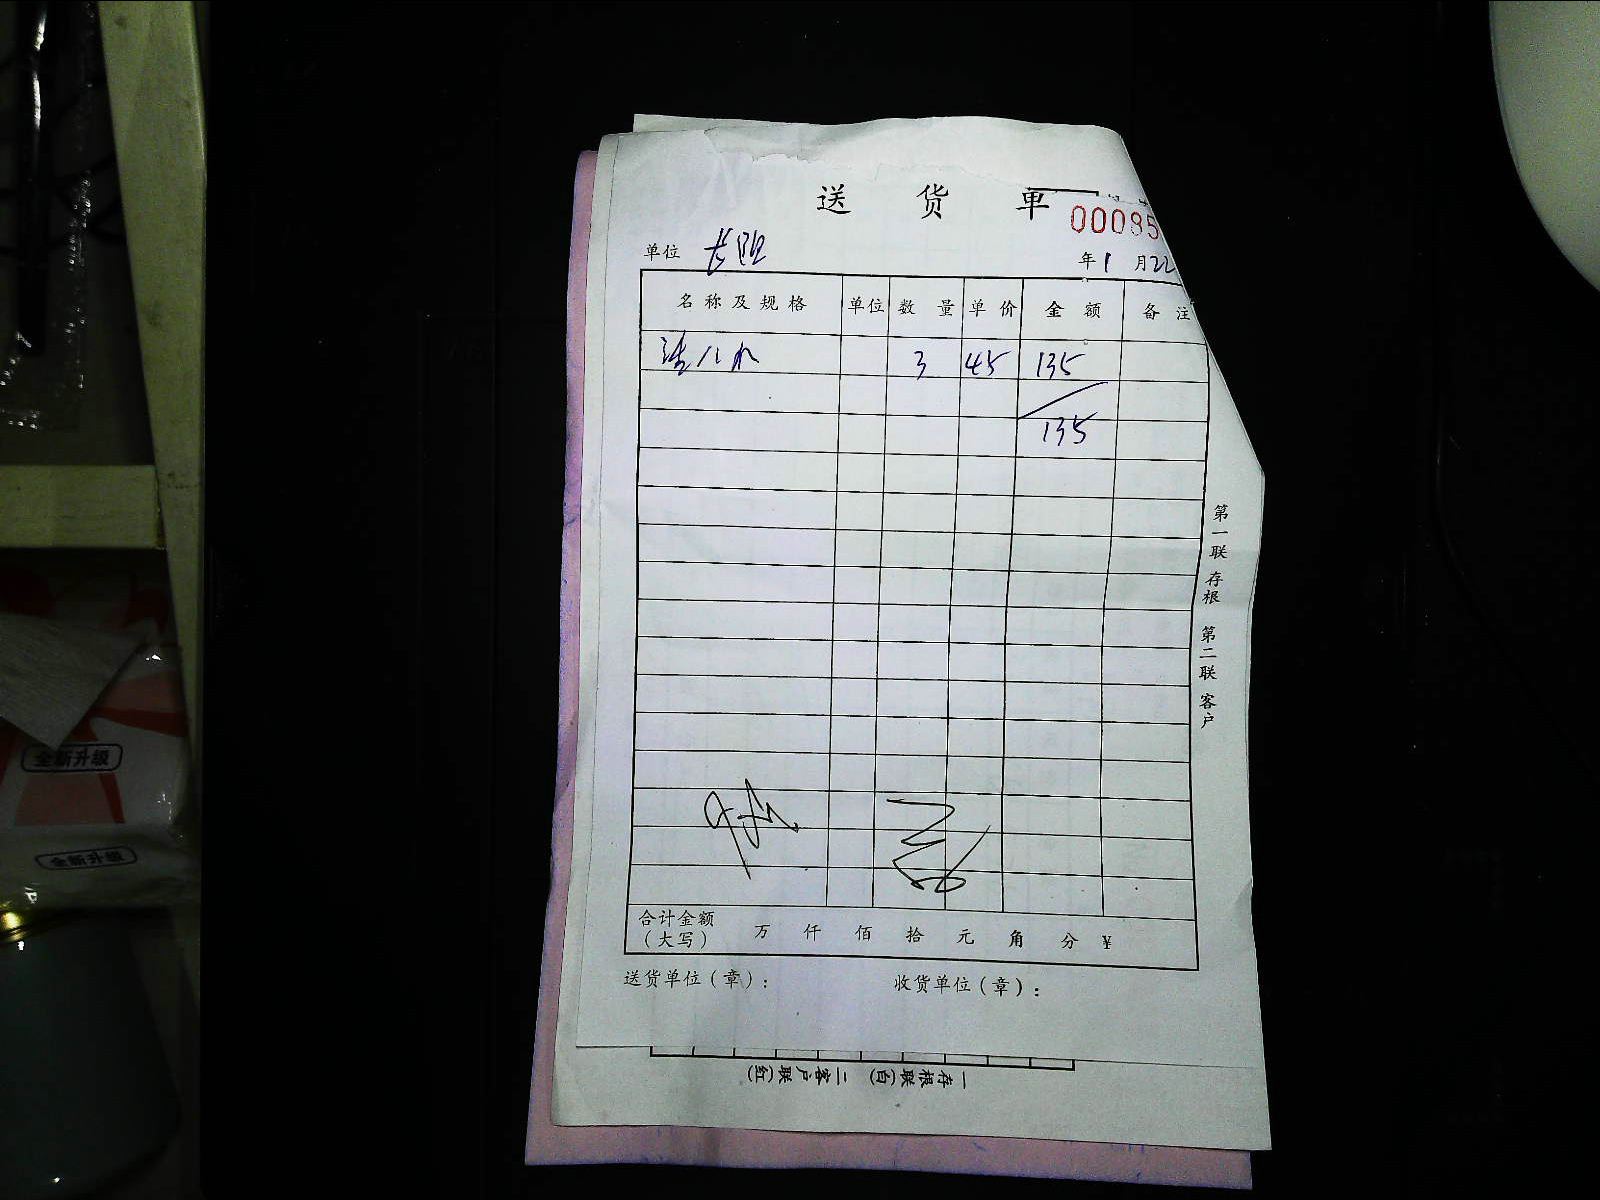 送 货 单
00085
单位
年1 月22
名称及规格 单位 数量 单价 金额 备注
3 45 135
135
第一联 存根 第二联 客户
合计金额
(大写) 万 仟 佰 拾 元 角 分 ¥
送货单位(章): 收货单位(章):
一存根联(白) 二客户联(红)
全新升级
全新升级